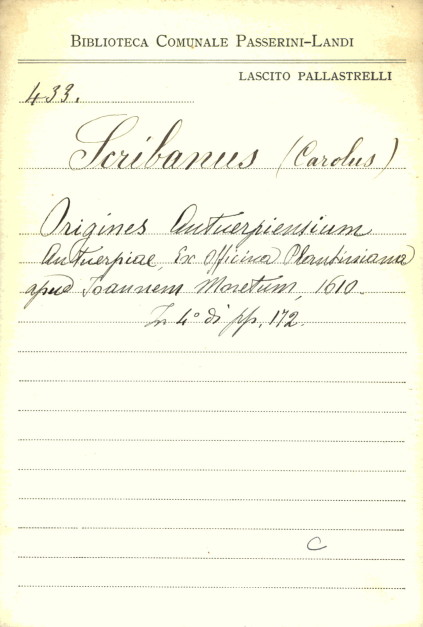 BIBLIOTECA COMUNALE PASSERINI-LANDI
LASCITO PALLASTRELLI
433.
Scribanus (Carolus)
Origines Antuerpiensium
Antuerpiae, Ex Officina Plantiniana
apud Ioannem Moretum, 1610.
In 4° di pp. 172.
C